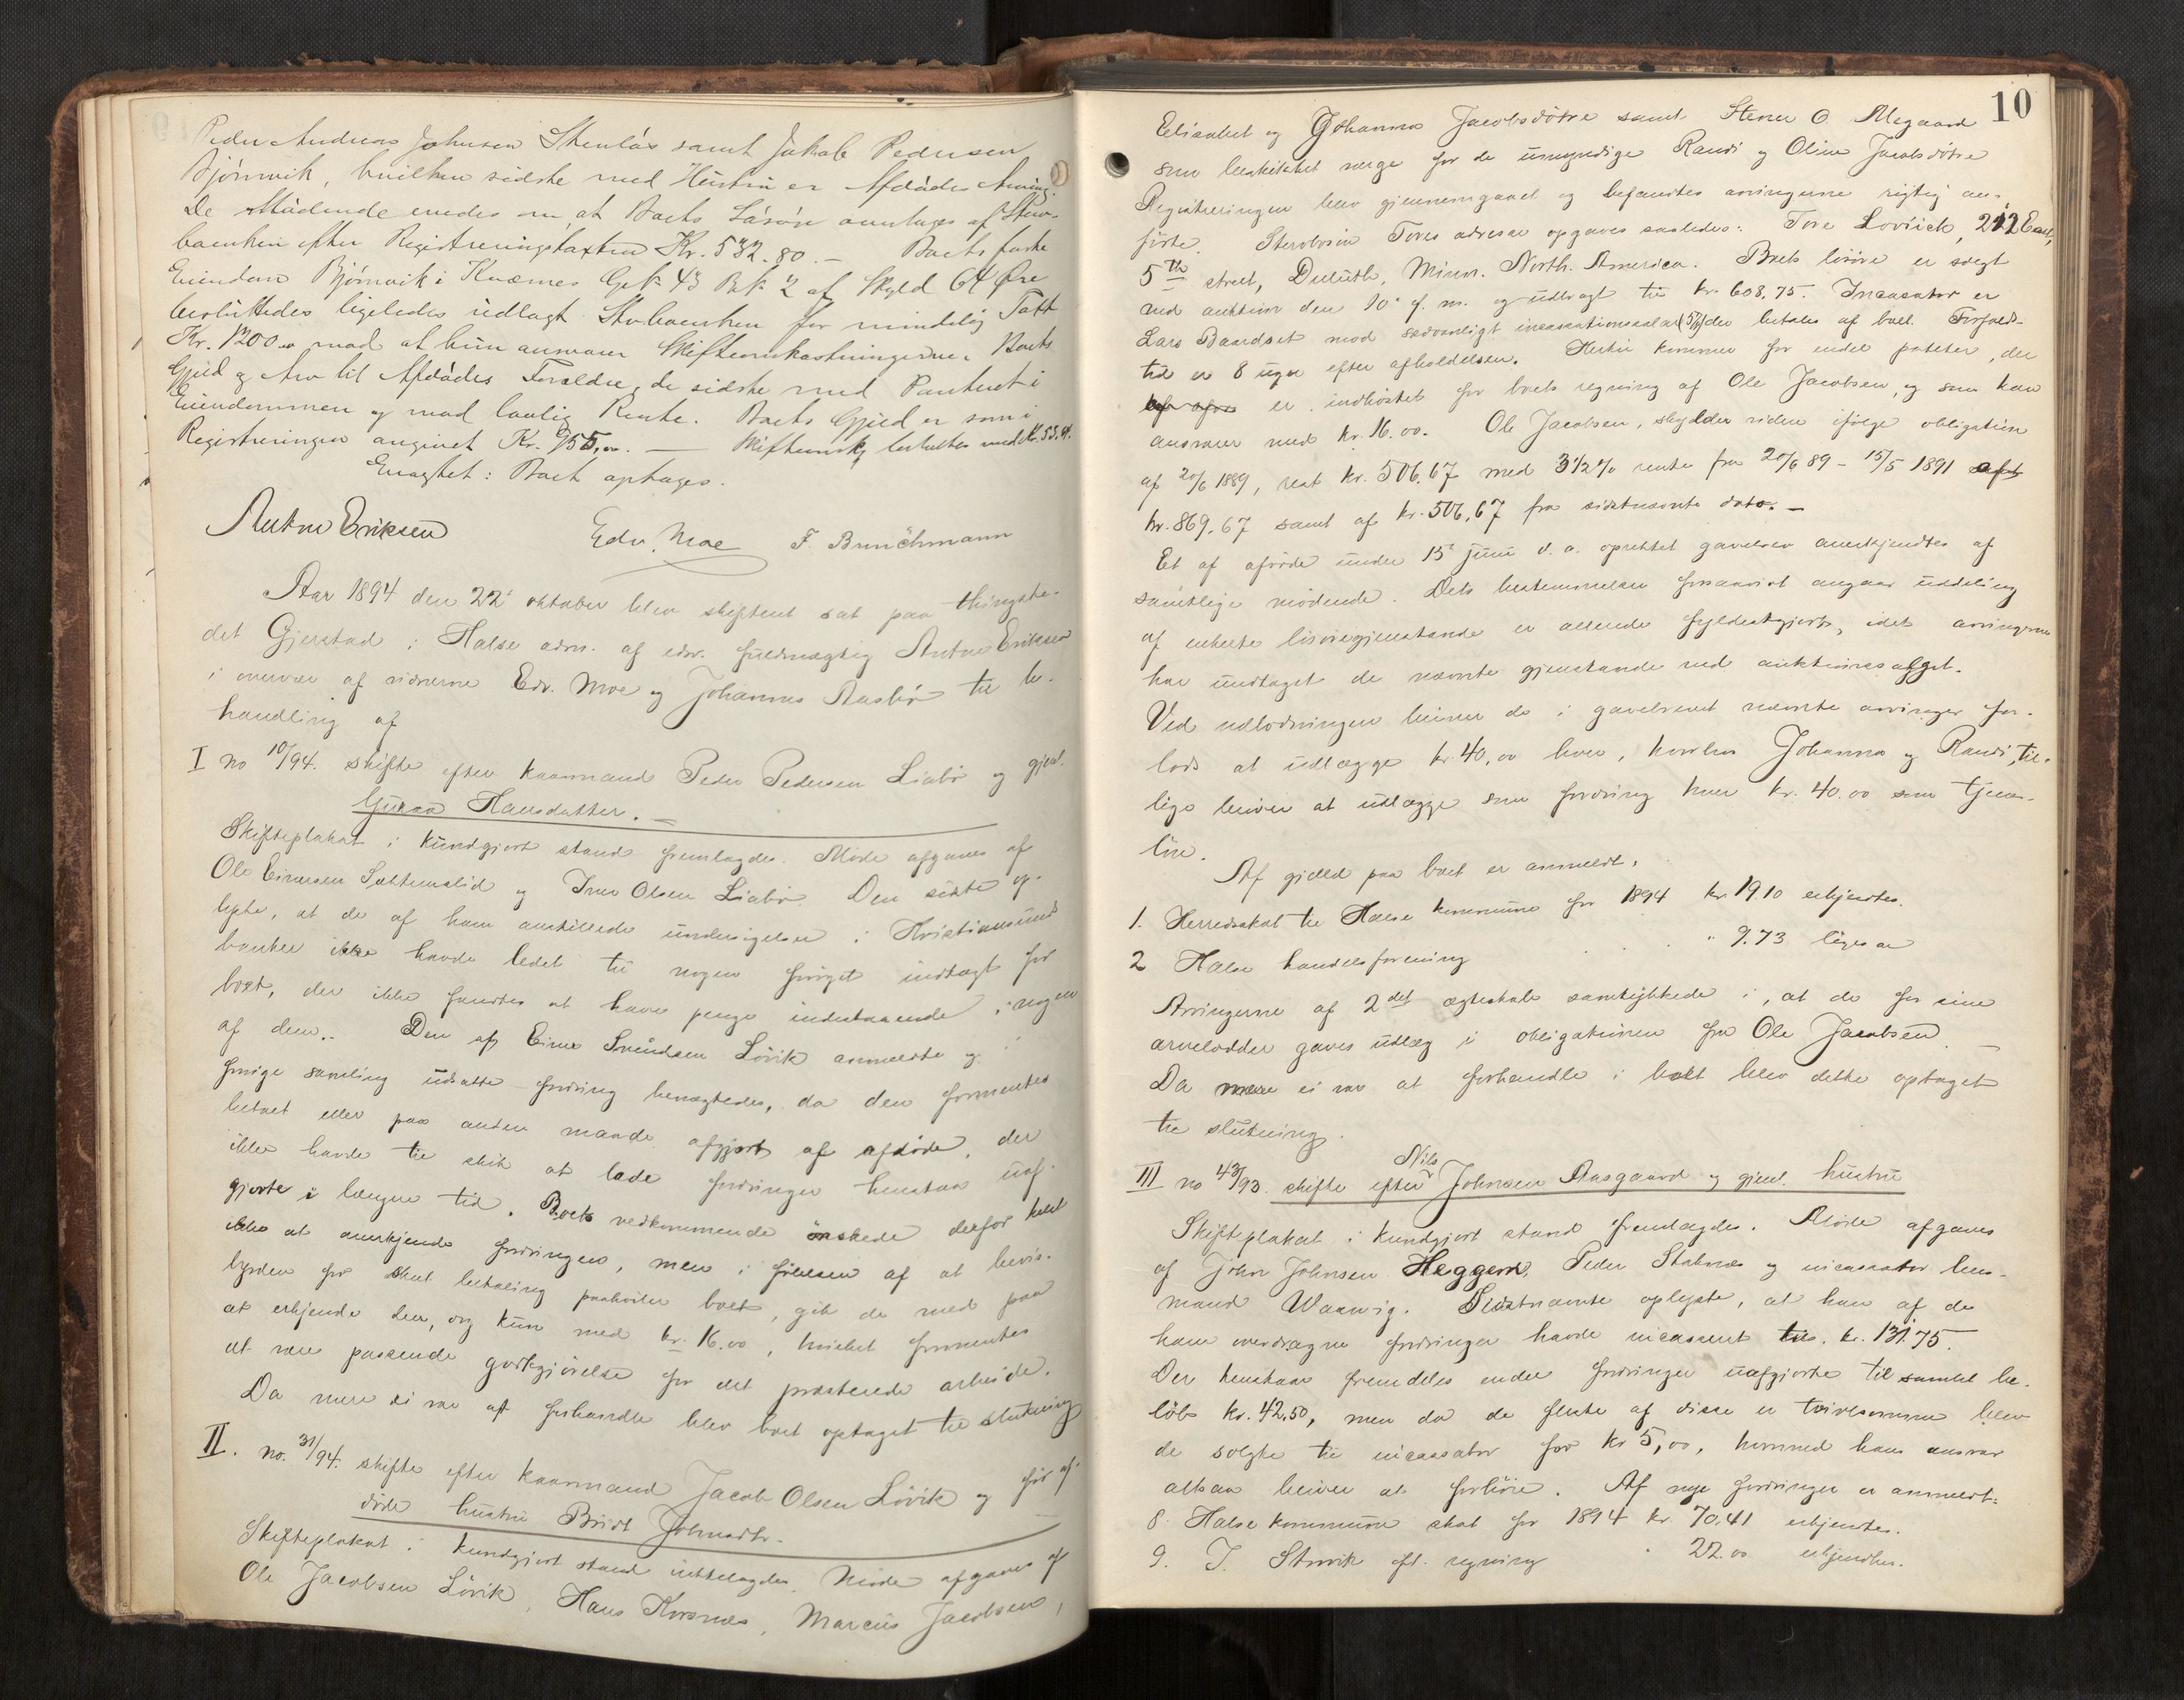 Peder Andreas Johnsen Stenlös samt Jakob Pedersen
Bjørnvik, hvilken sidste med Hustru er Afdødes Arving.
De Mødende enedes om at Boets Løsøre overtages af Stervboenken
efter Registreringstaxten Kr. 532.80. – Boets faste
Eiendom Bjørnvik i Knæmes Gsk. 43 Bk. 2 af Skyld 64 Øre
besluttedes ligeledes udlagt Stvboenken for mindelig Taxt
Kr. 1200.00 mod at hun ansvarer Skifteomkostningerne, Boets
Gjeld og Arv til Afdødes Forældre, de sidste med Panteret i
Eiendommen og mod lovlig Rente. Boets Gjeld er som i
Registreringen angivet Kr. 955,00. — Skifteomk. besluttes med Kr. 53.04.
Eragtet: Boet optages.
Anton Eriksen Edv. Moe F. Brüchmann
Aar 1894 den 22' oktober blev skifteret sat paa thingste-
det Gjerstad i Halse adm. af edsv. fuldmægtig Anton Eriksen
i overvær af vidnerne Edv. Moe og Johannes Aasbø til be-
handling af
I no 10/94. skifte efter kaarmand Peder Pedersen Liabø og gjenl.
Guraa Hansdatter. –
Skifteplakat i kundgjort stand fremlagdes. Møde afgaves af
Ole Einersen Settemslid og Iver Olsen Liabø. Den sidste op-
lyste, at de af ham anstillede undersøgelser i Kristiansunds
banker ikke havde ledet til nogen forøget indtægt for
boet, der ikke fandtes at have penge indestaaende i nogen
af dem. Den af Einar Svendsen Løvik anmeldte og i
forrige samling udsatte fordring benægtedes, da den formentes
betalt eller paa anden maade afgjort af afdøde, der
ikke havde til skik at lade fordringer henstaa uaf-
gjorte i længere tid. Boets vedkommende ønskede derfor helst
ikke at anerkjende fordringen, men i følelsen af at bevis-
byrden for skeet betaling paahviler boet, gik de med paa
at erkjende den, dog kun med kr. 16.00, hvilket formentes
at være passende godtgjørelse for det præsterede arbeide.
Da mere ei var at forhandle blev boet optaget til slutning
II. no. 31/94. skifte efter kaarmand Jacob Olsen Løvik og før af-
døde hustru Brit Johnsdtr.
Skifteplakat i kundgjort stand fremlagdes. Møde afgaves af
Ole Jacobsen Løvik, Hans Korsnes, Marcus Jacobsen,
10
Elisabet og Johanna Jacobsdøtre samt Stener O. Megaard
som beskikket værge for de umyndige Randi og Oline Jacobsdøtre
Registreringen blev gjennemgaaet og befandtes arvingerne rigtig an-
førte. Stervboøn Tores adresse opgaves saaledes: Tore Loviick, 212 East,
5th street, Duluth, Minn. North. America. Boets løsøre er solgt
ved auktion den 10' d. m. og udbragt til kr. 608.75. Incassator er
Lars Baardset mod sedvanligt incassationssalær (5%) der betales af boet. Forfalds-
tid er 8 uger efter afholdelsen. Hertil kommer for endel poteter, der
er indhøstet for boets regning af Ole Jacobsen, og som han
ansvarer med kr. 16.00. Ole Jacobsen, skylder videre ifølge obligation
af 20/6 1889, rest kr. 506.67 med 3½% rente fra 20/6 89 – 15/5 1891 af
kr. 869.67 samt af kr. 506.67 fra sidstnævnte dato. –
Et af afdøde under 15' juni d. a. oprettet gavebrev anerkjendtes af
samtlige mødende. Dets bestemmelser forsaavidt angaar uddeling
af enkelte løsøregjenstande er allerede fyldestgjort, idet arvingerne
har undtaget de nævnte gjenstande ved auktionssalget.
Ved udlodningen bliver de i gavebrevet nævnte arvinger for-
lods at udlægge kr. 40,00 hver, hvorhos Johanna og Randi til-
lige bliver at udlægge som fordring hver kr. 40.00 som tjener-
løn.
Af gjæld paa boet er anmeldt:
1. Herredsskat til Halse kommune for 1894 kr. 19.10 erkjendtes.
2 Halse handelsforening " 9.73 ligesaa
Arvingerne af 2det ægteskab samtykkede i, at de for sine
arvelodder gaves udlæg i obligationen fra Ole Jacobsen. –
Da mere ei var at forhandle i boet blev dette optaget
til slutning.
III no 43/93. skifte efter Nils Johnsen Aasgaard og gjenl. hustru
Skifteplakat i kundgjort stand fremlagdes. Møde afgaves
af John Johnsen Heggem, Peder Stabnes og incassator lens-
mand Waarvig. Sidstnævnte oplyste, at han af de
ham overdragne fordringer havde incasseret tils. kr. 131.75.
Der henstaar fremdeles endel fordringer uafgjorte til samlet be-
løb kr. 42.50, men da de fleste af disse er tvivlsomme blev
de solgte til incassator for kr 5,00, hvormed hans ansvar
altsaa bliver at forhøie. Af nye fordringer er anmeldt:
8. Halse kommune skat for 1894 kr. 70.41 erkjendtes.
9. J. Strvik ifl. regning " 22.00 erkjendtes.